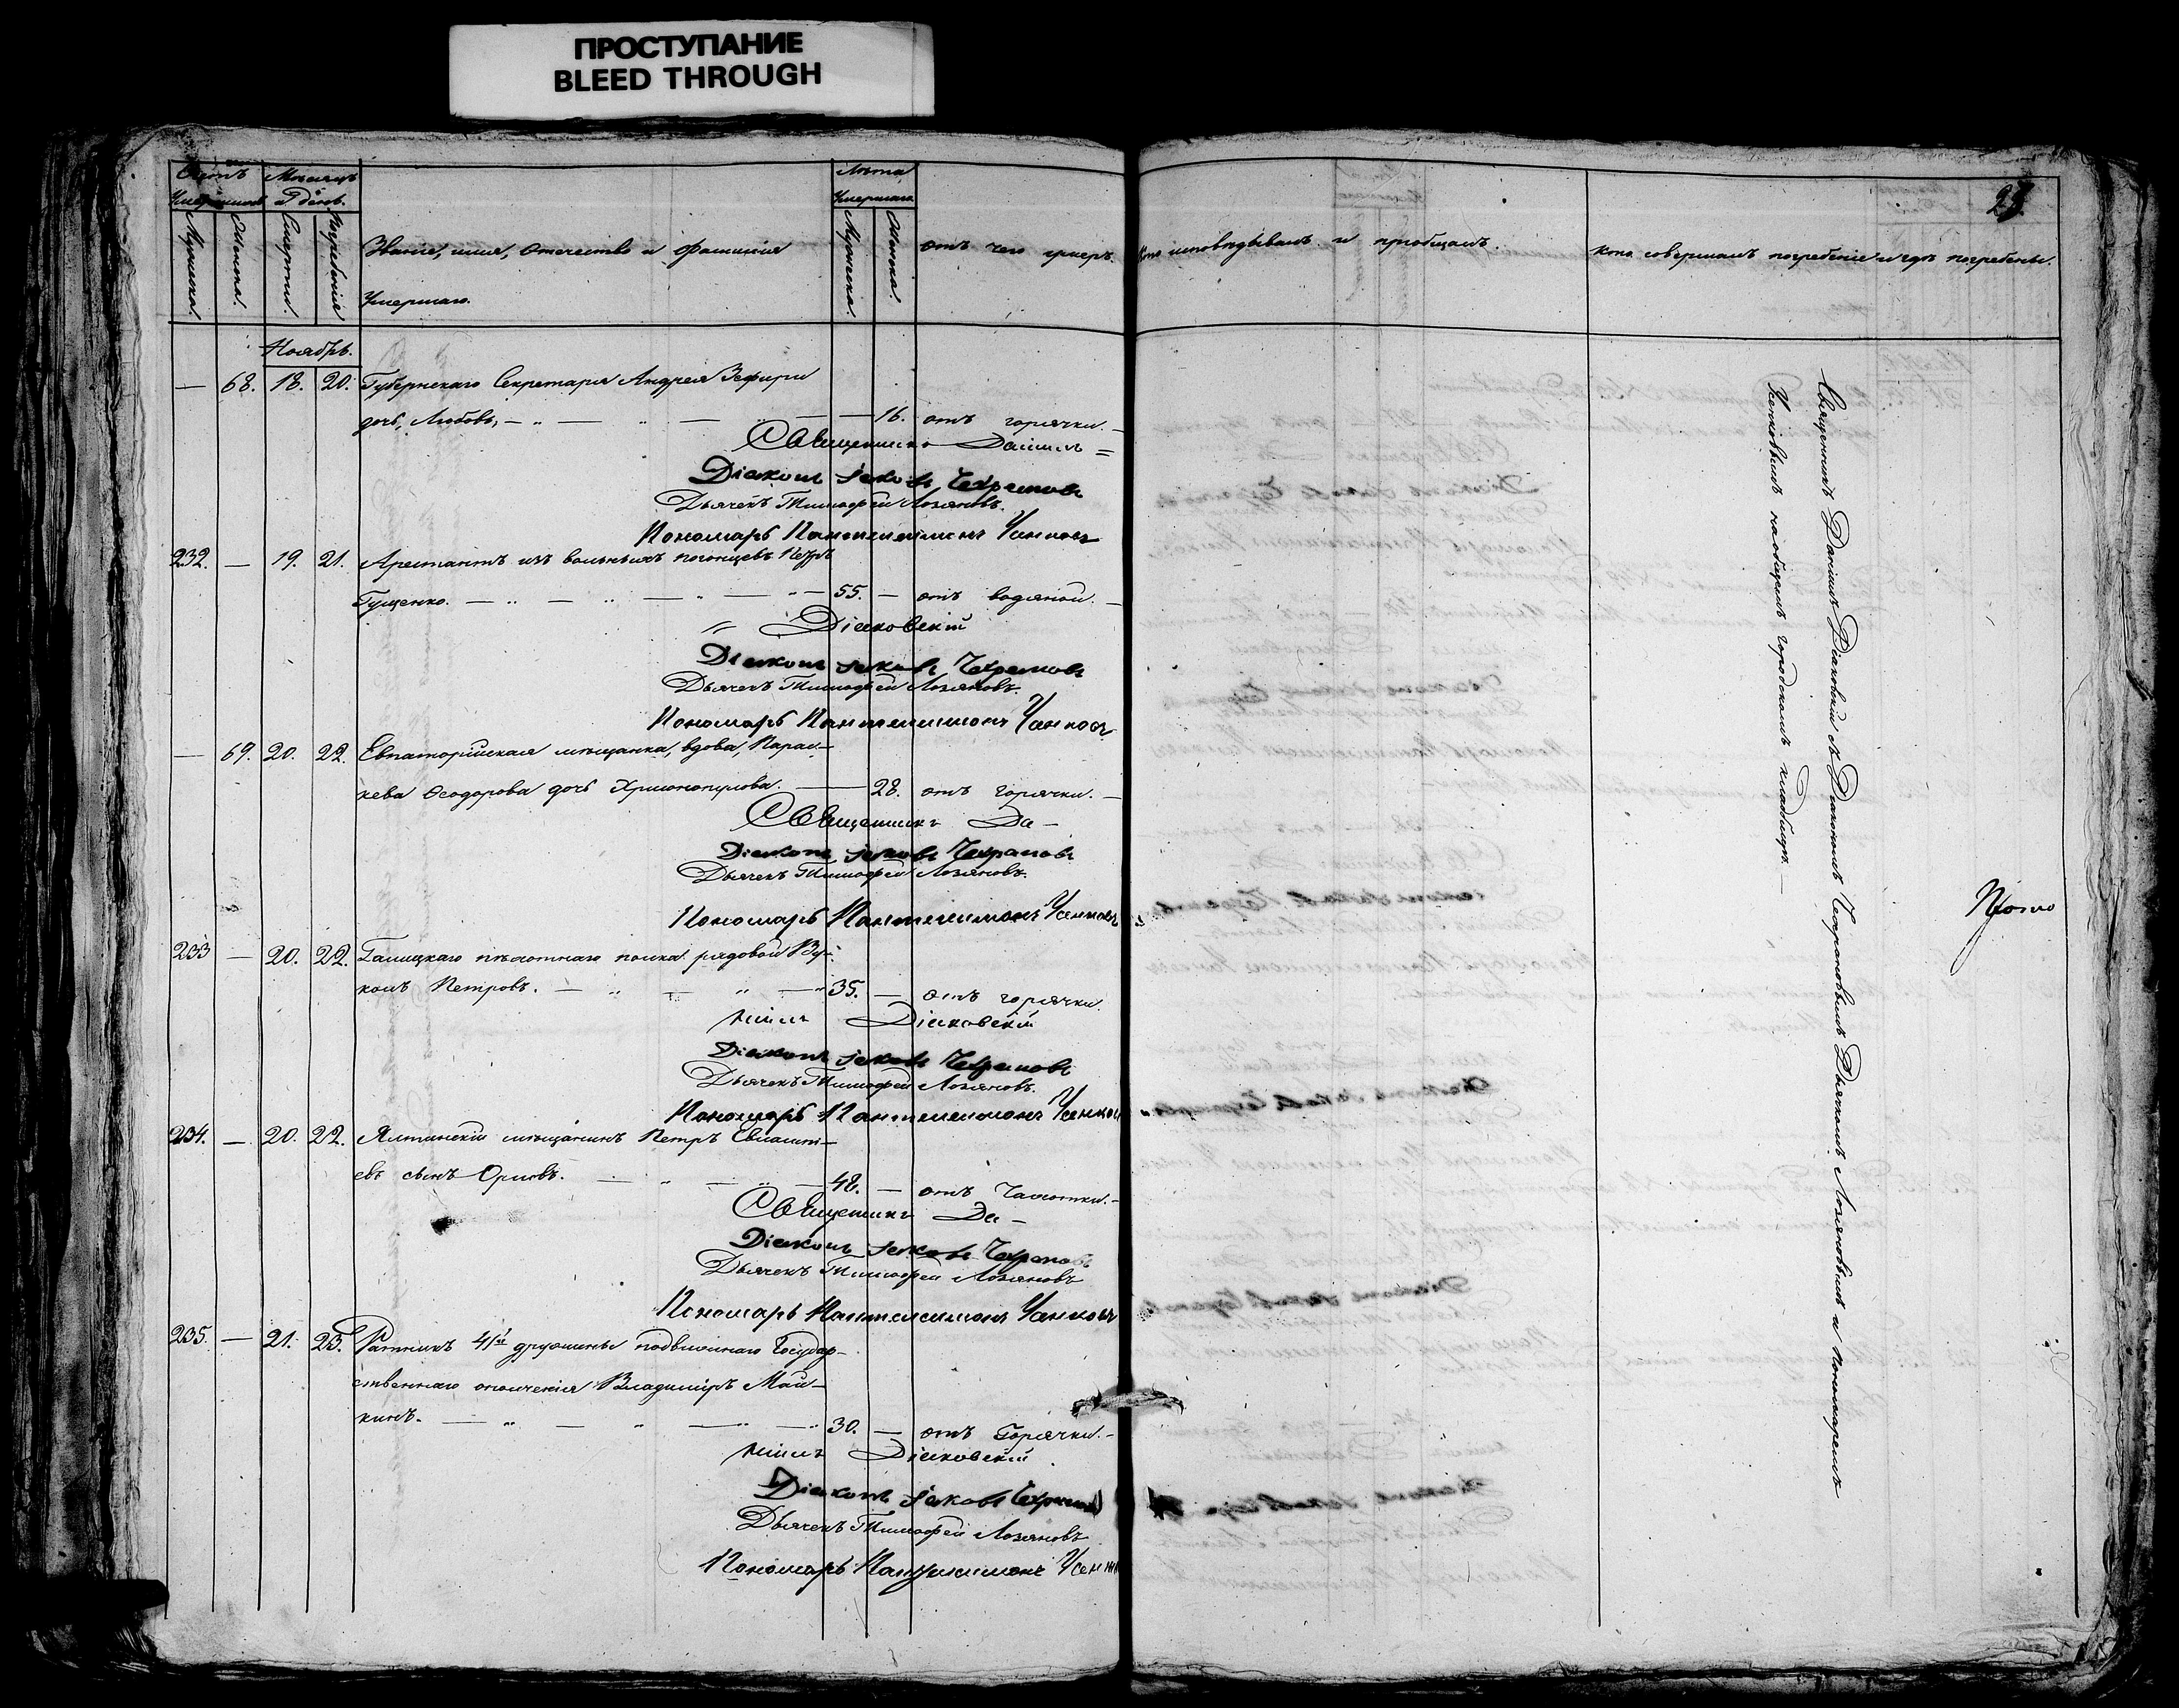 ПРОСТУПАНИЕ
BLEED THROUGH
23.
Счетъ умершихъ
Мѣсяцъ и день.
Лѣта умершаго.
Мужеска.
Женска.
Смерти.
Погребенія
Званіе, имя, отечество и фамилія
умершаго.
Мужеска.
Женска.
отъ чего умеръ.
Кто исповѣдывалъ и пріобщалъ.
кто совершалъ погребеніе и гдѣ погребены.
Ноябрь.
— 68. 18. 20. Губернскаго Секретаря Андрея Зефири
дочь, Любовь, — 16. отъ горячки. —
Священникъ Даніилъ =
Діаконъ Іаковъ Чехрановъ
Дьячекъ Тимофей Лозановъ.
Пономарь Пантелеимонъ Усенковъ
232. — 19. 21. Арестантъ изъ вольныхъ погонцевъ Петръ
Гущенко. — 55. — отъ водяной. —
= Діаковскій
Діаконъ Іаковъ Чехрановъ
Дьячекъ Тимофей Лозановъ.
Пономарь Пантелеимонъ Усенковъ
— 69. 20. 22. Евпаторійская мѣщанка, вдова, Парас-
кева Ѳеодорова дочь — 28. отъ горячки. —
Священникъ Да-
Діаконъ Іаковъ Чехрановъ
Дьячекъ Тимофей Лозановъ.
Пономарь Пантелеимонъ Усенковъ
233 — 20. 22. Галицкаго пѣхотнаго полка рядовой Ву-
колъ Петровъ. — 35. — отъ горячки.
ніилъ Діаковскій
Діаконъ Іаковъ Чехрановъ
Дьячекъ Тимофей Лозановъ.
Пономарь Пантелеимонъ Усенков
234. — 20. 22. Ялтинскій мѣщанинъ Петръ
евъ сынъ Орловъ. — 48. — отъ Чахотки. —
Священникъ Да-
Діаконъ Іаковъ Чехрановъ
Дьячекъ Тимофей Лозановъ
Пономарь Пантелеимонъ Усенковъ
235. — 21. 23. Ратникъ 41й дружины подвижнаго Государ-
ственнаго ополченія Владиміръ Май-
кинъ. — 30. — отъ Горячки. —
ніилъ Діаковскій
Діаконъ Іаковъ Чехрановъ
Дьячекъ Тимофей Лозановъ
Пономарь Пантелеимонъ Усенк
Священникъ Даніилъ Діаковскій съ Діакономъ Чехрановымъ Дьячкомъ Лозановымъ и пономаремъ
Усенковымъ на общемъ городскомъ кладбищѣ. —